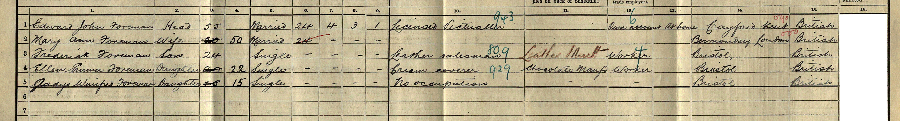 1 Edward John Foreman Head 55 Married 24 4 3 1 Licensed Victualler 943 Own account At home Crayford Kent British
2 Mary Ann Foreman Wife 50 Married 24 Bermondsey London British
3 Frederick Foreman Son 24 Single Leather salesman 809 Leather Worker Bristol British
4 Foreman Daughter 22 Single Cream coverer 929 Chocolate Manfs Worker Bristol British
5 Gladys Winifred Foreman Daughter 15 Single No occupation Bristol British
6
7